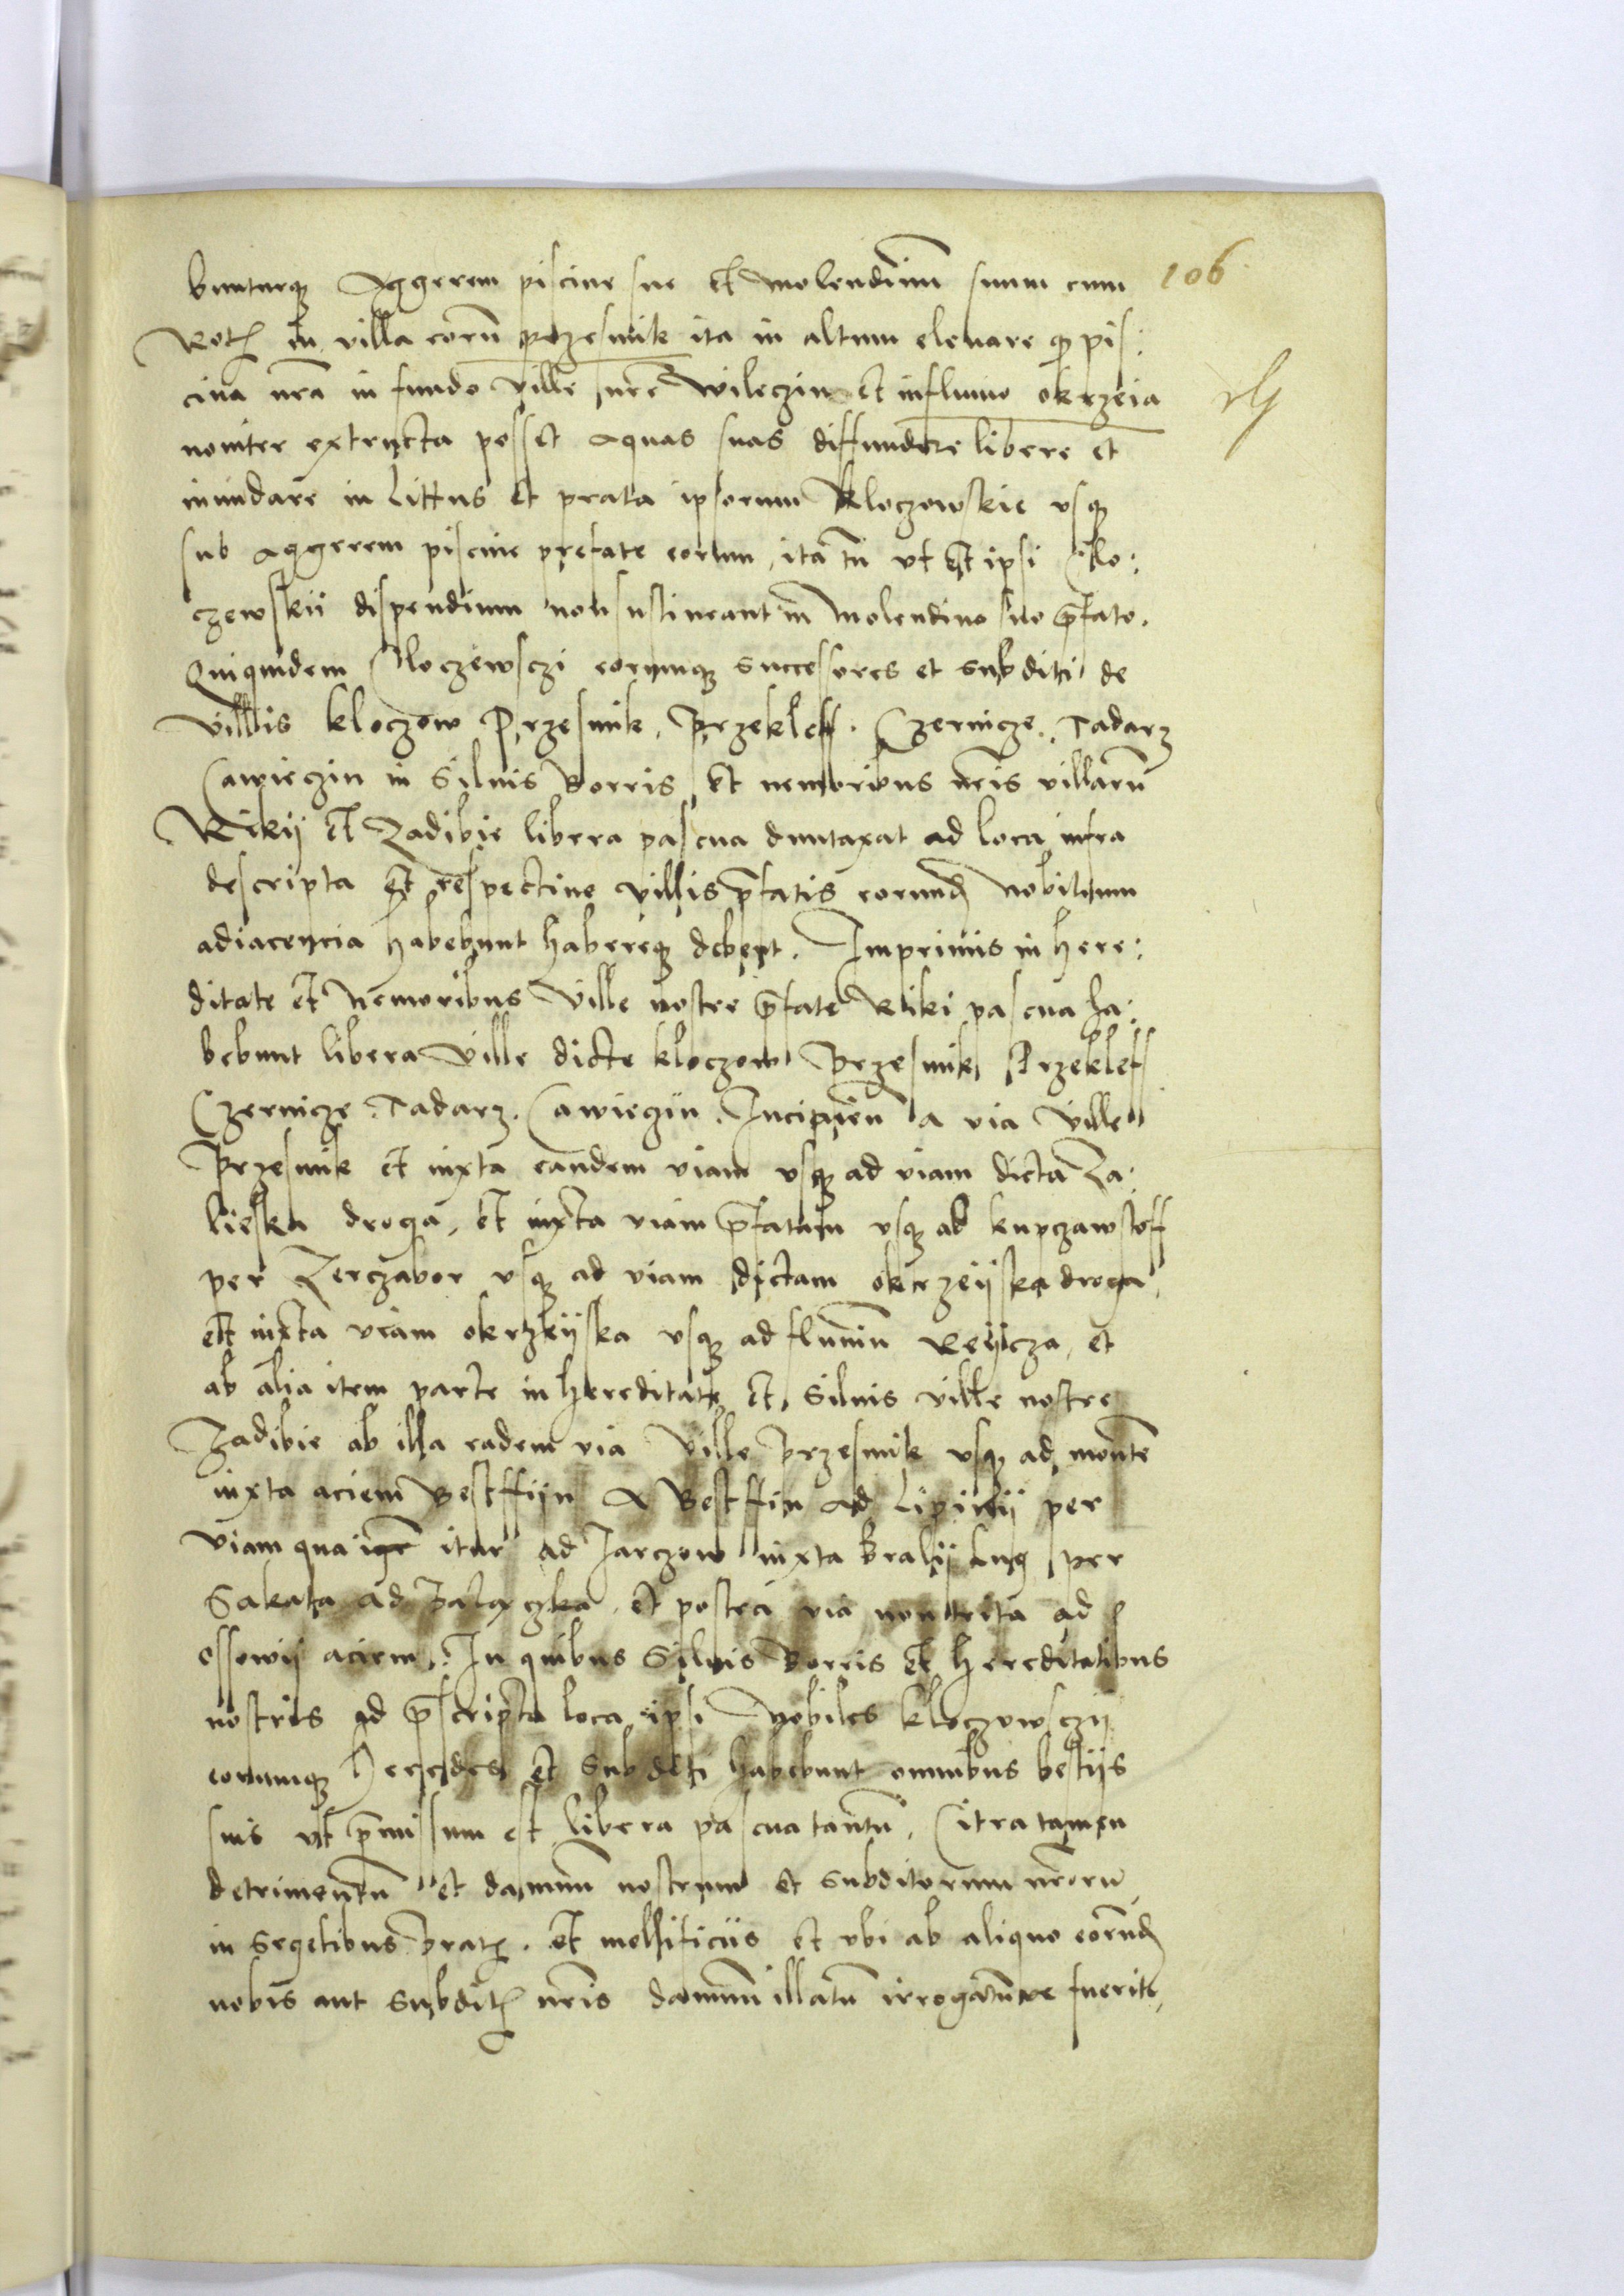 106
bunturq; Aggerem piscine sue et molendinu suum cum
Rotis in villa eoru przesmik ita in altum eleuare q pis:
cina nra in fundo ville nre wileczin et in fluuio okrzeia
nouiter extructa posset aquas suas diffundere libere et
inundare in Littus et prata ipsorum Kloczowskie vsq;
sub aggerem piscine prefate eorum, ita tn vt et ipsi Clo:
czewskii dispendium non sustineant in molendino suo pfato.
Quiquidem Cloczewsczi eorumq; successores et subditi de
villis kloczow Przesmik, Przekleff. Czernicze. Tadarz
Cawieczin in Siluis Borris, et nemoribus nris villaru
Rikij et Zadibie libera pascua duntaxat ad loca infra
descripta et respectiue villis pfatis eorund nobilium
adiacencia habebunt habereq; debent. Imprimis in here:
ditate et nemoribus ville nostre pfate Riki pascua ha:
bebunt libera ville dicte kloczow Przesmik Przekleff
Czernicze. Tadarz. Cawieczin. Incipien a via ville
Przesmik et iuxta eandem viam vsq; ad viam dicta Za:
lieska droga, et iuxta viam pfatam vsq; ad kupczawstoff
per Zerczabor vsq; ad viam dictam okrzeijska droga,
et iuxta viam okrzeijska vsq; ad fluuiu Reijcza, et
ab alia item parte in hereditate et Siluis ville nostre
Zadibie ab illa eadem via ville Przesmik vsq; ad monte
iuxta aciem Bestffijn A Bestffin ad Lipinij per
viam qua itur ad Jarczow iuxta kralij lug per
Sakata ad et postea via non trita ad
ossowij aciem. In quibus Siluis Borris et hereditatibus
nostris ad pscripta loca ipsi Nobiles kloczowsczij
eorumq; Heredes et subditi habebunt omnibus bestijs
suis vt pmissum est libera pascua tantu, Citra tamen
detrimentu et damnu nostrum et subditorum nroru
in segetibus pratis. et mellificiis et vbi ab aliquo eorund
nobis aut subditis nris damnu illatu irrogatumve fuerit,